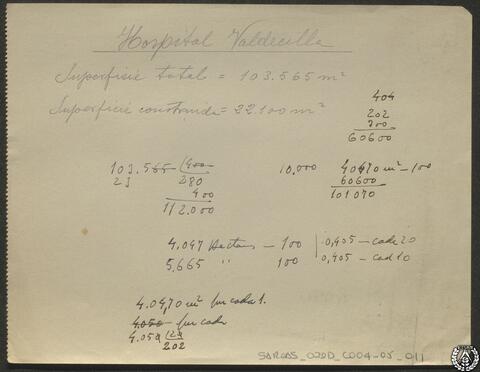 Hospital Valdecilla
Superficie total = 103.565 m²
Superficie construida = 22.100 m²
404
202
300
60600
103.565 400
23 280
400
112.000
10.000 40470 m² - 100
60600
101070
4.047 Hectareas - 100 0,405 - cada 20
5,665 " 100 0,405 - cad 10
4.04,70 m² por cada 1.
4.050 por cada
4.050 20
202
SARGAS_020D_C004-05_011